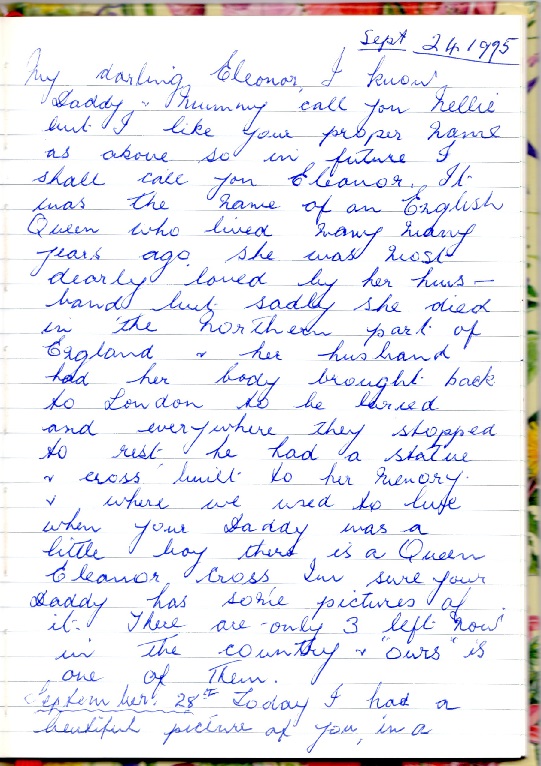 Sept 24 1995
My darling Eleonor, I know
Daddy & Mummy call you Nellie
but I like your proper name
as above so in future I
shall call you Eleanor. It
was the name of an English
Queen who lived many many
years ago. she was most
dearly loved by her hus-
band but sadly she died
in the northern part of
England & her husband
had her body brought back
to London to be buried
and everywhere they stopped
to rest he had a statue
& cross built to her memory.
& where we used to live
when your Daddy was a
little boy there is a Queen
Eleanor Cross Im sure your
Daddy has some pictures of
it. There are only 3 left now
in the country & "ours" is
one of them.
September. 28th Today I had a
beautiful picture of you, in a